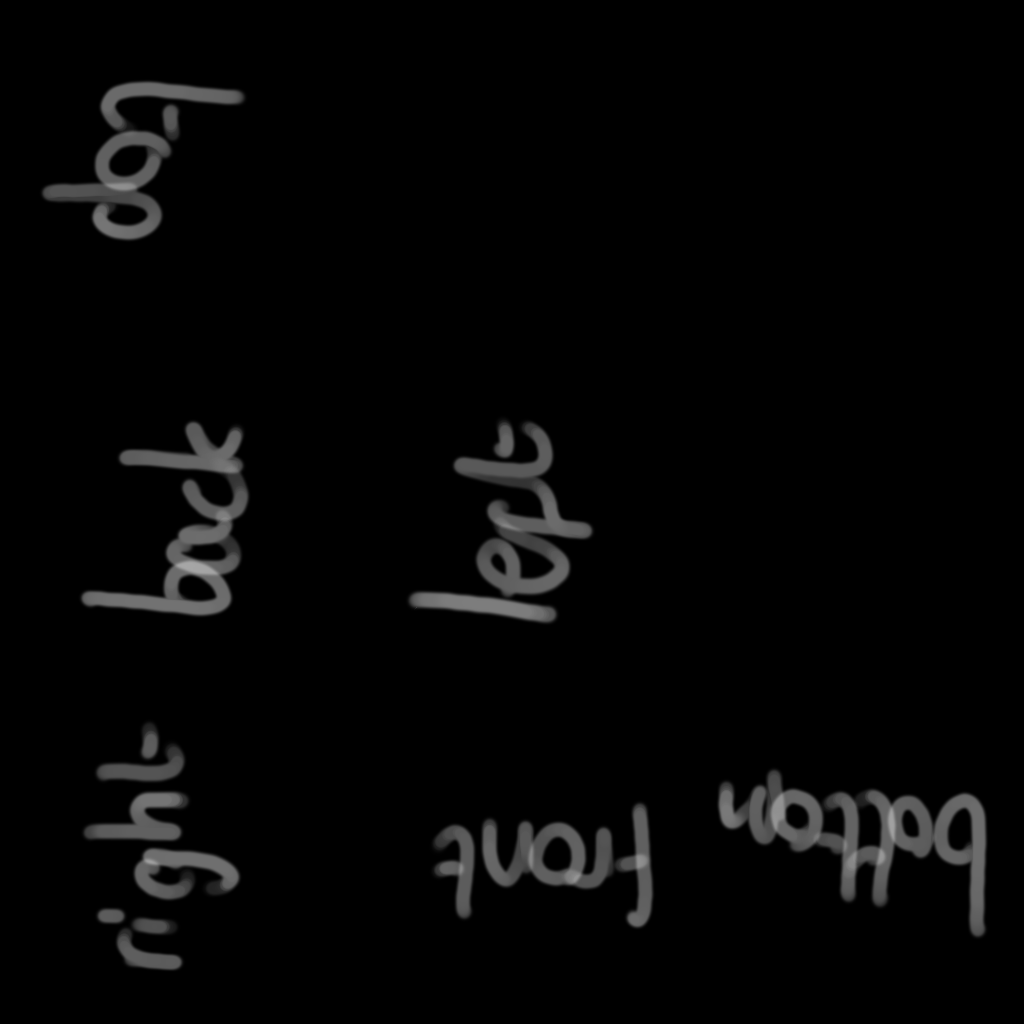 top
back
left
right
front
bottom